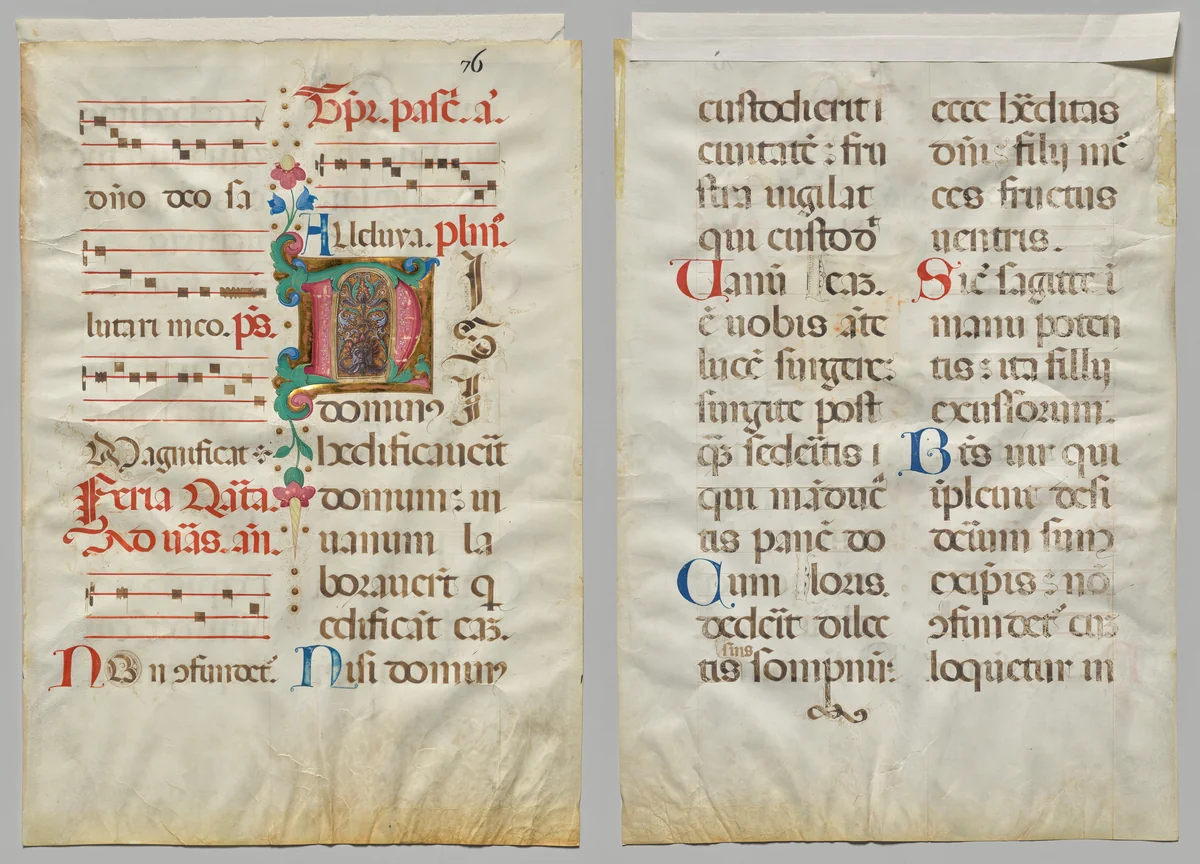 76
dn̄o deo sa
lutari meo. ps̄.
Magnificat
Feria Q̄a̅ta.
Ad ūas. an̄.
Non ↄfundet᷑.
Tp̄r. pasc̄. a͛.
Alleluya. pl̄m̄.
NISI
dominꝰ
hedificauerit
domum: in
uanum la
borauer̄t q̄
edificāt eaꝫ.
Nisi dominꝰ
custodierit i
cuitatē: fru
stra uigilat
qui custod
Uanū eaꝫ.
ē uobis āte
lucē surger̄:
surgite post
q̄ꝫ seder̄tis i
qui māduc̄
tis panē do
Cum loris.
dederit dilec
tis suis sompnū:
ecce heditas
dn̄i: filij mc̄
ces fructus
uentris.
Sic̄ sagitte ī
manu poten
tis: ita filly
excussorum.
Bt̄s uir qui
īpleuit desi
deriūm suuꝫ
ex ip̄is: nō
ↄfundet᷑ cuꝫ
loquetur in